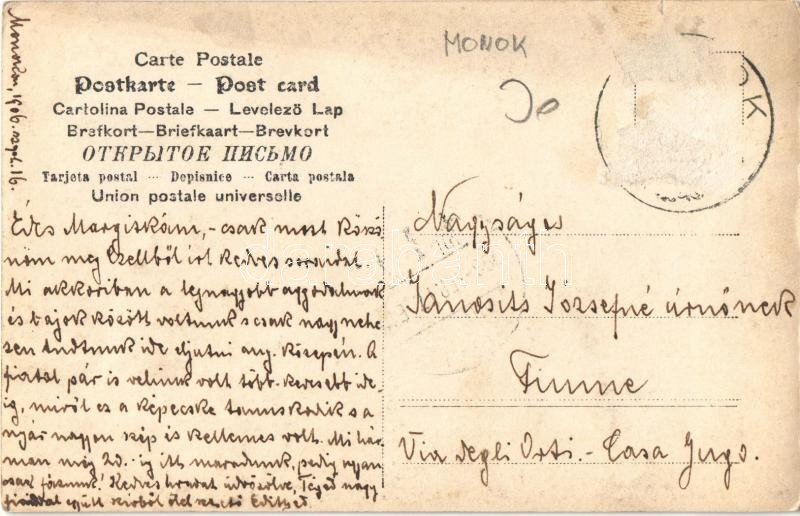 Monokon, 1906. szept. 16.
MONOK
Carte Postale
Postkarte — Post card
Cartolina Postale — Levelező Lap
Brefkort—Briefkaart—Brevkort
ОТКРЫТОЕ ПИСЬМО
Tarjeta postal — Dopisnice — Carta postala
Union postale universelle
OK
Édes Margitkám, - csak most köszö-
nöm meg Czellből írt kedves soraidat.
Mi akkoriban a legnagyobb aggodalmak
és bajok között voltunk s csak nagy nehe-
zen tudtunk ide eljutni aug. közepén. A
fiatal pár is velünk volt több-kevesebb ide-
ig, miről ez a képecske tanuskodik s a
nyár nagyon szép és kellemes volt. Mi hár-
man még 20.-ig itt maradunk, pedig ugyan-
csak fázunk! Kedves Uradat üdvözölve, Téged nagy
fiaddal együtt szívből ölel szerető Edithed.
Nagyságos
Janosits Jozsefné úrnőnek
Fiume
Via degli Orti.- Casa Jugo.